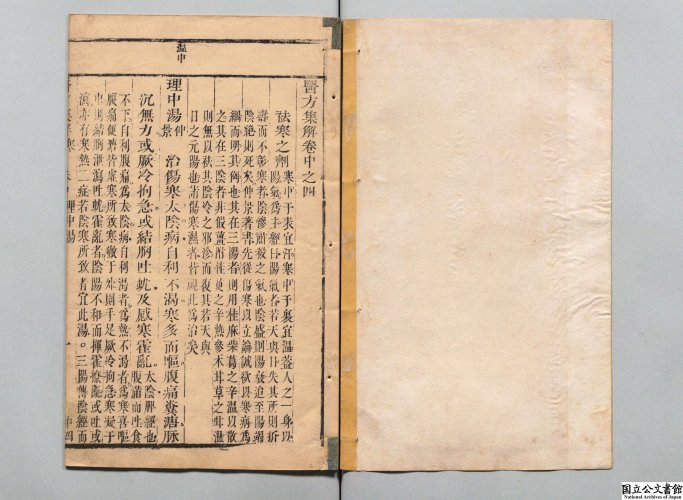 醫方集解卷中之四
祛寒之劑 寒中于表宜汗寒中于裏宜溫蓋人之一身以
陽氣爲主經曰陽氣者若天與日失其所則折
壽而不彰寒者陰慘肅殺之氣也陰盛則陽衰迨至陽竭
陰絶則死矣仲景著書先從傷寒以立論誠欲以寒病爲
綱而明其例也其在三陽者則用桂麻柴葛之辛溫以散
之其在三陰者非假薑附性燥之辛熱參朮甘草之甘溫
則無以祛其陰冷之邪沴而復其若天與
日之元陽也諸傷寒濕者皆視此爲治矣
溫中
理中湯 仲景 治傷寒太陰病自利不渴寒多而嘔腹痛糞溏脉
沉無力或厥冷拘急或結胸吐蚘及感寒霍亂 太陰脾經也
腹滿而吐食
不下自利腹痛爲太陰病自利渴者爲熱不渴者爲寒喜嘔
腹痛便溏皆虛寒所致寒徹于外則手足厥冷拘急寒凝于
中則結胸泄瀉吐蚘霍亂者陰陽不和而揮霍撩亂或吐或
瀉亦有寒熱二症若陰寒所致者宜此湯。三陽傳陰經而
理中湯 一 中四
国立公文書館
National Archives of Japan